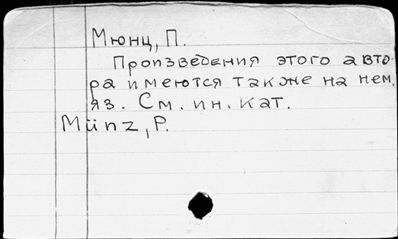 Мюнц, П.
Произведения этого авто-
ра имеются также на нем.
яз. См. ин. кат.
Münz, P.